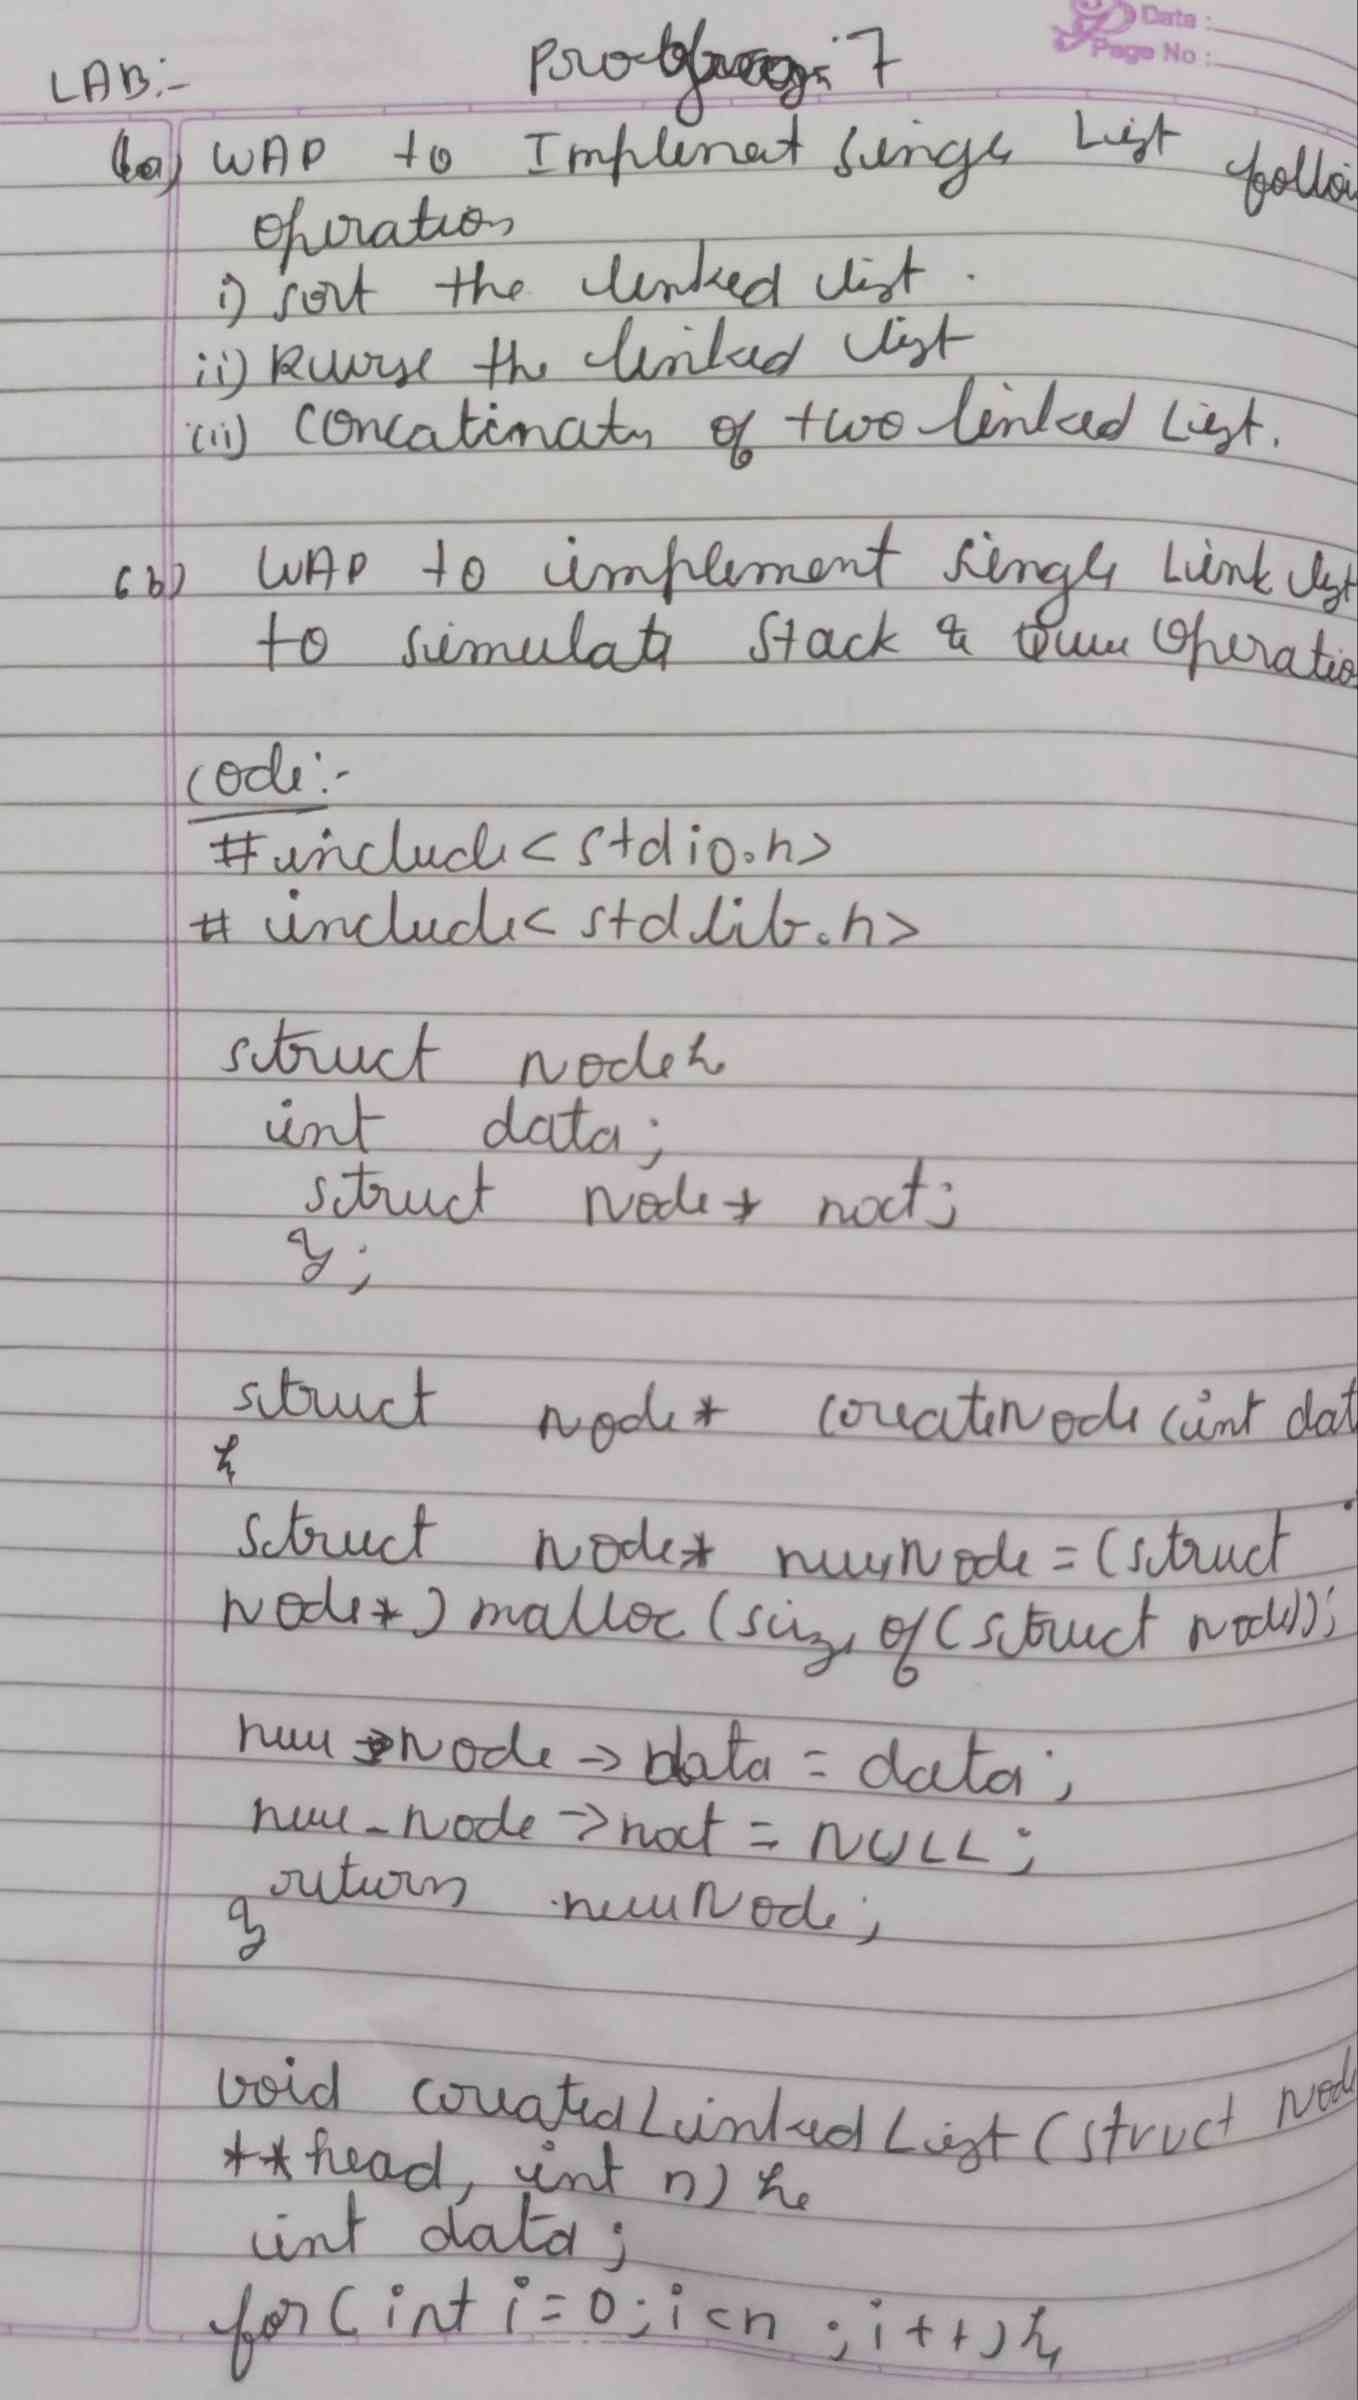 Date :
Page No :
LAB:-
Program: 7
6a) WAP to Implemat Singly List follow
operation
i) sort the linked list.
ii) Reverse the linked list
iii) Concatinatn of two linked List.
6b) WAP to implement Singly Link list
to simulate Stack & Queue Operatio
Code:-
#include<stdio.h>
# include<stdlib.h>
struct node{
int data;
struct Node* next;
};
struct node* createNode (int dat
{
struct Node* newNode = (struct
Node*) malloc (size of (struct node));
new Node -> data = data;
new_Node -> next = NULL;
return newNode;
}
void createdLinkedList (struct Node
**head, int n) {
int data;
for (int i=0; i<n ; i++) {